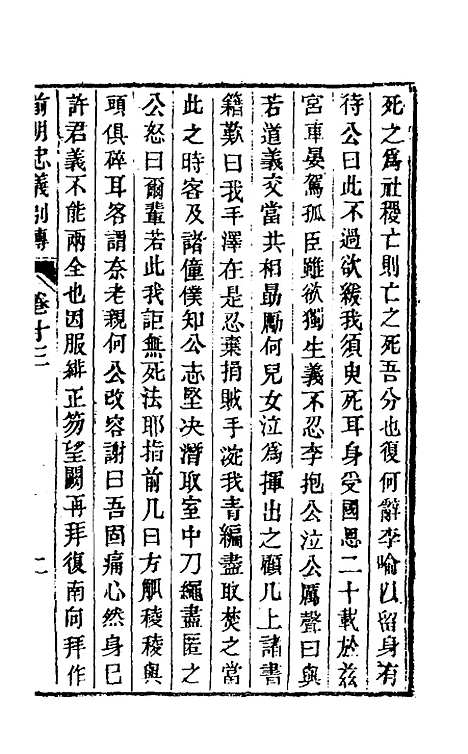 死之爲社稷亡則亡之死吾分也復何辭李喻以留身有
待公曰此不過欲緩我須臾死耳身受國恩二十載於茲
宮車晏駕孤臣雖欲獨生義不忍李抱公泣公厲聲曰與
若道義交當共相勗勵何兒女泣爲揮出之顧几上諸書
籍歎曰我手澤在是忍棄捐賊手淀我青編盡取焚之當
此之時客及諸僮僕知公志堅决潛取室中刀繩盡匿之
公怒曰爾輩若此我詎無死法耶指前几曰方觚稜稜與
頭俱碎耳客謂奈老親何公改容謝曰吾固痛心然身已
許君義不能兩全也因服緋正笏望闕再拜復南向拜作
前明忠義別傳
卷廿二